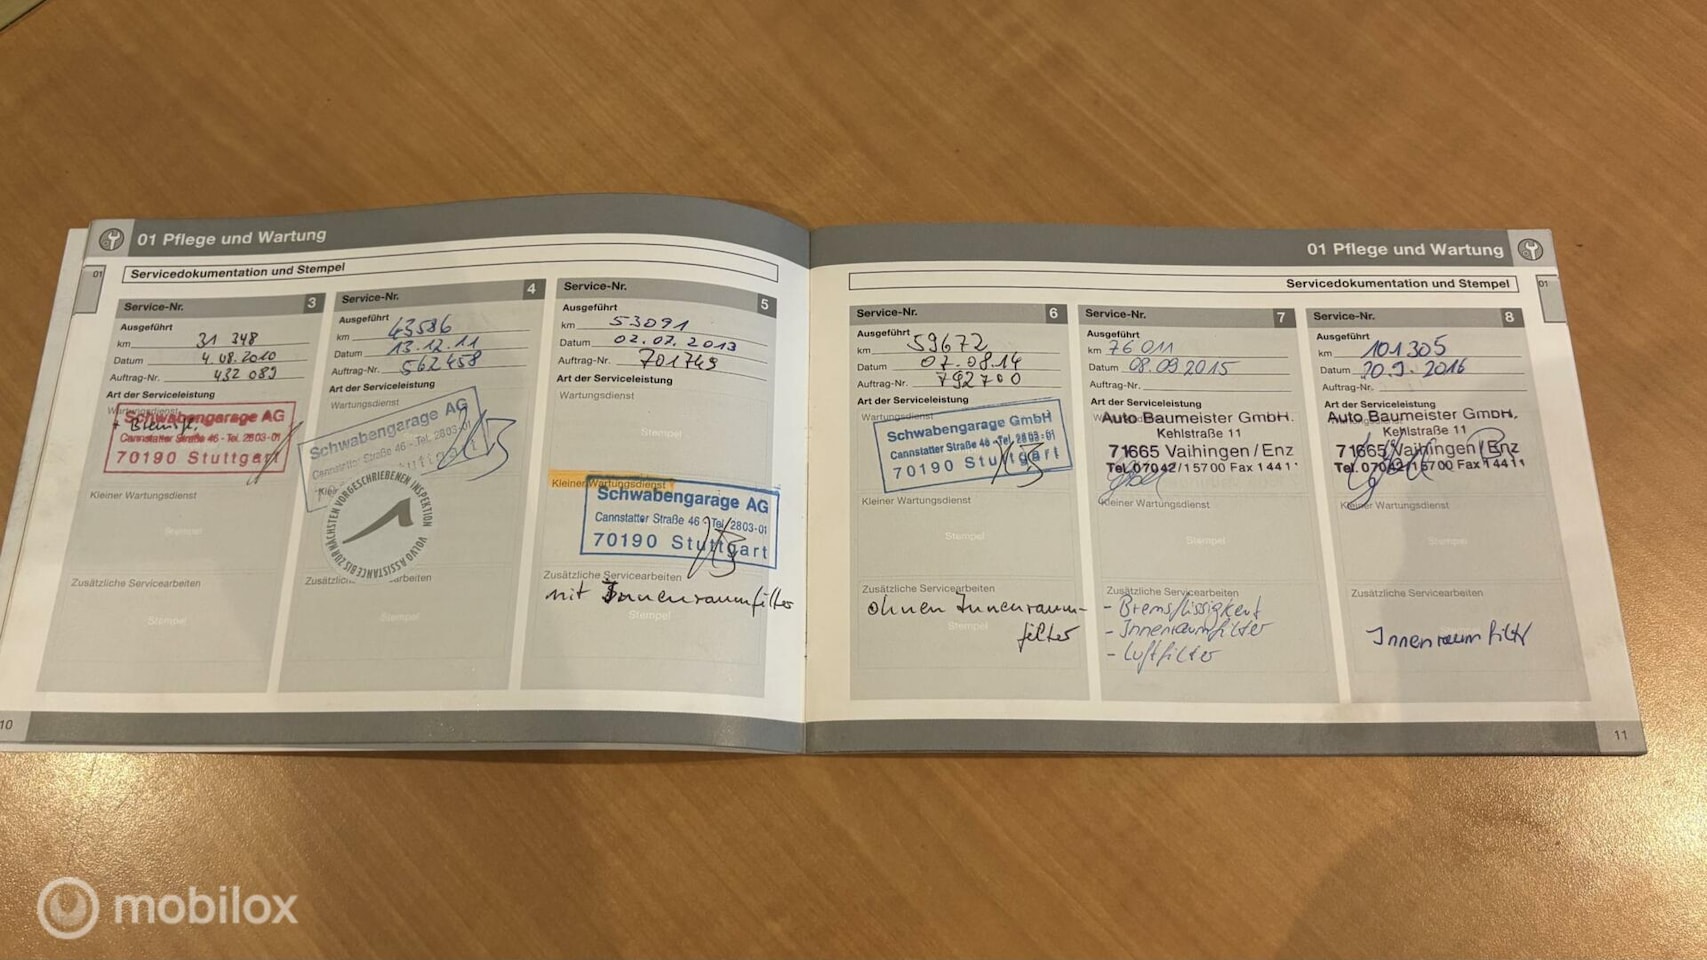 01 Pflege und Wartung
01
Servicedokumentation und Stempel
Service-Nr. 3
Ausgeführt
km 31 348
Datum 4.08.2010
Auftrag-Nr. 432 089
Art der Serviceleistung
Wartungsdienst
Schwabengarage AG
Cannstatter Straße 46 - Tel. 28 03-01
70190 Stuttgart
Kleiner Wartungsdienst
Stempel
Zusätzliche Servicearbeiten
Stempel
Service-Nr. 4
Ausgeführt
km 43586
Datum 13.12.11
Auftrag-Nr. 562458
Art der Serviceleistung
Wartungsdienst
Schwabengarage AG
Cannstatter Straße 46 - Tel. 2803-01
VOLVO ASSISTANCE BIS ZUR NÄCHSTEN VORGESCHRIEBENEN INSPEKTION
Stempel
Service-Nr. 5
Ausgeführt
km 53091
Datum 02.07.2013
Auftrag-Nr. 701749
Art der Serviceleistung
Wartungsdienst
Stempel
Kleiner Wartungsdienst
Schwabengarage AG
Cannstatter Straße 46 - Tel. 2803-01
70190 Stuttgart
Zusätzliche Servicearbeiten
mit Innenraumfilter
Stempel
10
01 Pflege und Wartung
01
Servicedokumentation und Stempel
Service-Nr. 6
Ausgeführt
km 59672
Datum 07.08.14
Auftrag-Nr. 792700
Art der Serviceleistung
Wartungsdienst
Schwabengarage GmbH
Cannstatter Straße 46 - Tel. 2803-01
70190 Stuttgart
Kleiner Wartungsdienst
Stempel
Zusätzliche Servicearbeiten
ohnen Innenraum-
Stempel
filter
Service-Nr. 7
Ausgeführt
km 76 011
Datum 08.09.2015
Auftrag-Nr.
Art der Serviceleistung
Auto Baumeister GmbH.
Kehlstraße 11
71665 Vaihingen/Enz
Tel. 07042/15700 Fax 14411
Kleiner Wartungsdienst
Stempel
Zusätzliche Servicearbeiten
- Bremsflüssigkeit
- Innenraumfilter
- Luftfilter
Service-Nr. 8
Ausgeführt
km 101.305
Datum 20.9.2016
Auftrag-Nr.
Art der Serviceleistung
Auto Baumeister GmbH.
Kehlstraße 11
71665 Vaihingen/Enz
Tel. 07042/15700 Fax 14411
Kleiner Wartungsdienst
Stempel
Zusätzliche Servicearbeiten
Innenraumfilter
11
mobilox